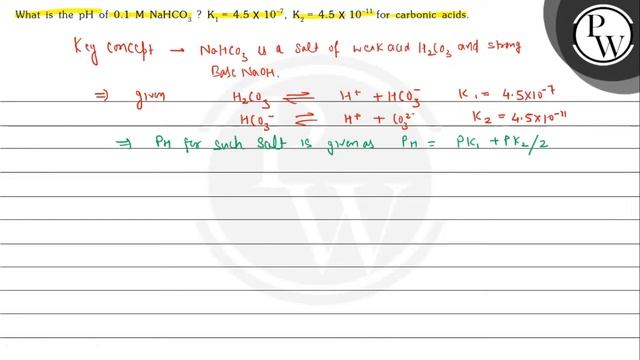 What is the pH of 0.1 M NaHCO₃ ? K₁ = 4.5 X 10⁻⁷, K₂ = 4.5 X 10⁻¹¹ for carbonic acids.
Key concept → NaHCO₃ is a salt of weak acid H₂CO₃ and strong
Base NaOH.
⇒ given H₂CO₃ ⇌ H⁺ + HCO₃⁻ K₁ = 4.5×10⁻⁷
HCO₃⁻ ⇌ H⁺ + CO₃²⁻ K₂ = 4.5×10⁻¹¹
⇒ PH for such salt is given as PH = PK₁ + PK₂/2
PW